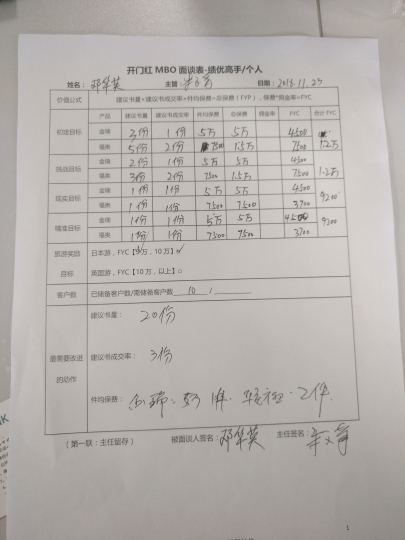 开门红 MBO 面谈表-绩优高手/个人
姓名： 邓华英 主管： 日期：2018.11.23
价值公式 建议书量*建议书成交率*件均保费=总保费（FYP），保费*佣金率=FYC
产品 建议书量 建议书成交率 件均保费 总保费 佣金率 FYC 合计 FYC
初定目标 金瑞 3份 1份 5万 5万 4500 1.2万
福类 5份 2份 7500 1.5万 7500
挑战目标 金瑞 2份 1份 5万 5万 4500 1.2万
福类 3份 2份 7500 1.5万 7500
现实目标 金瑞 1份 1份 5万 5万 4500 9200
福类 1份 1份 7500 7500 3700
精准目标 金瑞 1份 1份 5万 5万 4500 9200
福类 1份 1份 7500 7500 3700
旅游奖励目标 日本游，FYC【5万，10万】
英国游，FYC【10万，以上】□
客户数 已储备客户数/需储备客户数 10 /
最需要改进的动作 建议书量： 20份
建议书成交率： 3份
件均保费： 2件
（第一联：主任留存） 被面谈人签名： 邓华英 主任签名：
1